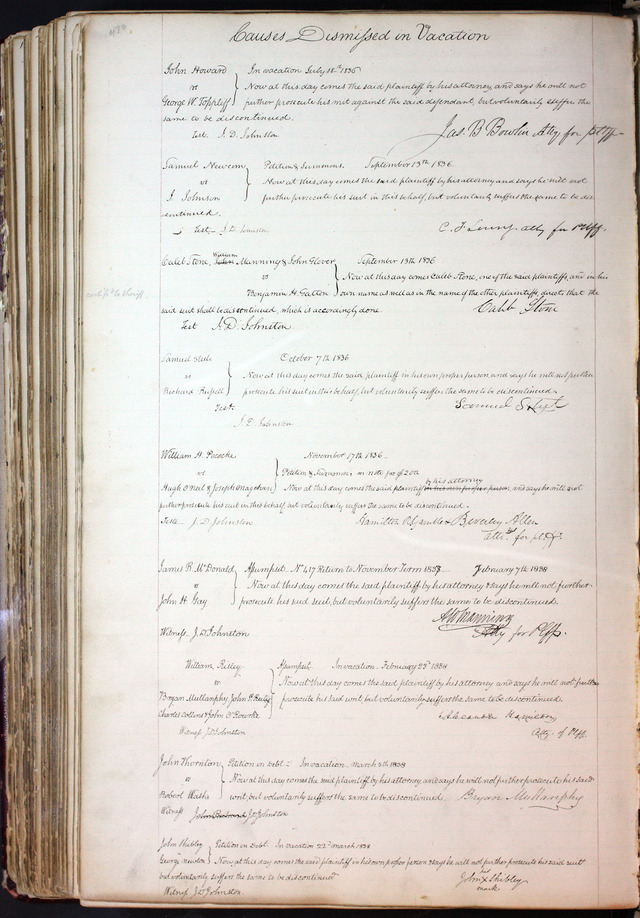 478
Causes Dismissed in Vacation
John Howard In vacation July 18th 1836
vs Now at this day comes the said plaintiff by his attorney and says he will not
George W. Toppliff further prosecute his suit against the said defendant, but voluntarily suffers the
same to be discontinued.
Test. J. D. Johnston Jas. B Bowlin Atty for pltff
Samuel Newcom Petition & Summons. September 13th 1836
vs Now at this day comes the said plaintiff by his attorney and says he will not
J. Johnson further prosecute his suit in this behalf, but voluntarily suffers the same to be dis-
continued.
Test J. D. Johnston atty for Plff.
Caleb Stone, William Manning & John Glover September 13th 1836
vs Now at this day comes Caleb Stone, one of the said plaintiffs, and in his
Benjamin H. Gatton own name as well as in the name of the other plaintiffs, directs that the
said suit shall be discontinued, which is accordingly done.
Caleb Stone
Test J. D. Johnston
Samuel October 7th 1836
vs Now at this day comes the said plaintiff in his own proper person and says he will not further
Richard Russell prosecute his suit in this behalf, but voluntarily suffers the same to be discontinued.
Test: Samuel
J. D. Johnston
William H. Pococke November 17th 1836
vs Petition & Summons, on note for $200
by his attorney
Hugh O'Neil & Joseph Managhan Now at this day comes the said plaintiff in his own proper person, and says he will not
further prosecute his suit in this behalf, but voluntarily suffers the same to be discontinued.
Teste J. D. Johnston Hamilton R. Gamble & Beverley Allen
attys for pltff
James R. McDonald Assumpsit. No 417 Return to November Term 1837. February 7th 1838
vs Now at this day comes the said plaintiff by his attorney & says he will not further
John H. Gay prosecute his said suit, but voluntarily suffers the same to be discontinued.
A W Manning
Witness J. D. Johnston Atty for Plffs.
William Risley Assumpsit. In vacation February 23d 1838
vs Now at this day comes the said plaintiff by his attorney and says he will not further
Bryan Mullanphy, John P. Reily prosecute his said suit, but voluntarily suffers the same to be discontinued.
Charles Collins & John O'Rourke Alexander Hamilton
Witness J. D. Johnston Atty. of Plff.
John Thornton Petition in Debt In vacation March 5th 1838
vs Now at this day comes the said plaintiff by his attorney and says he will not further prosecute his said
Robert Wash suit, but voluntarily suffers the same to be discontinued. Bryan Mullanphy
Witness J. D. Johnston
John Shibley Petition in Debt In vacation 22d March 1838
George Newton Now at this day comes the said plaintiff in his own proper person & says he will not further prosecute his said suit
but voluntarily suffers the same to be discontinued
his
John X Shibley
mark
Witness J. D. Johnston